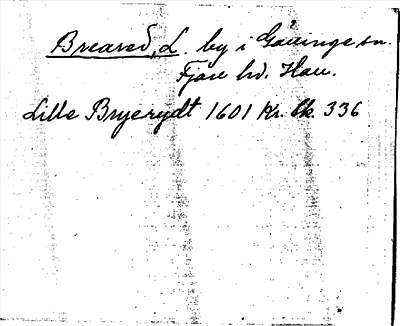 Breared, L. by i Gällinge sn.
Fjäre hd. Hall.
Lille Bryerydt 1601 Kr. bk. 336